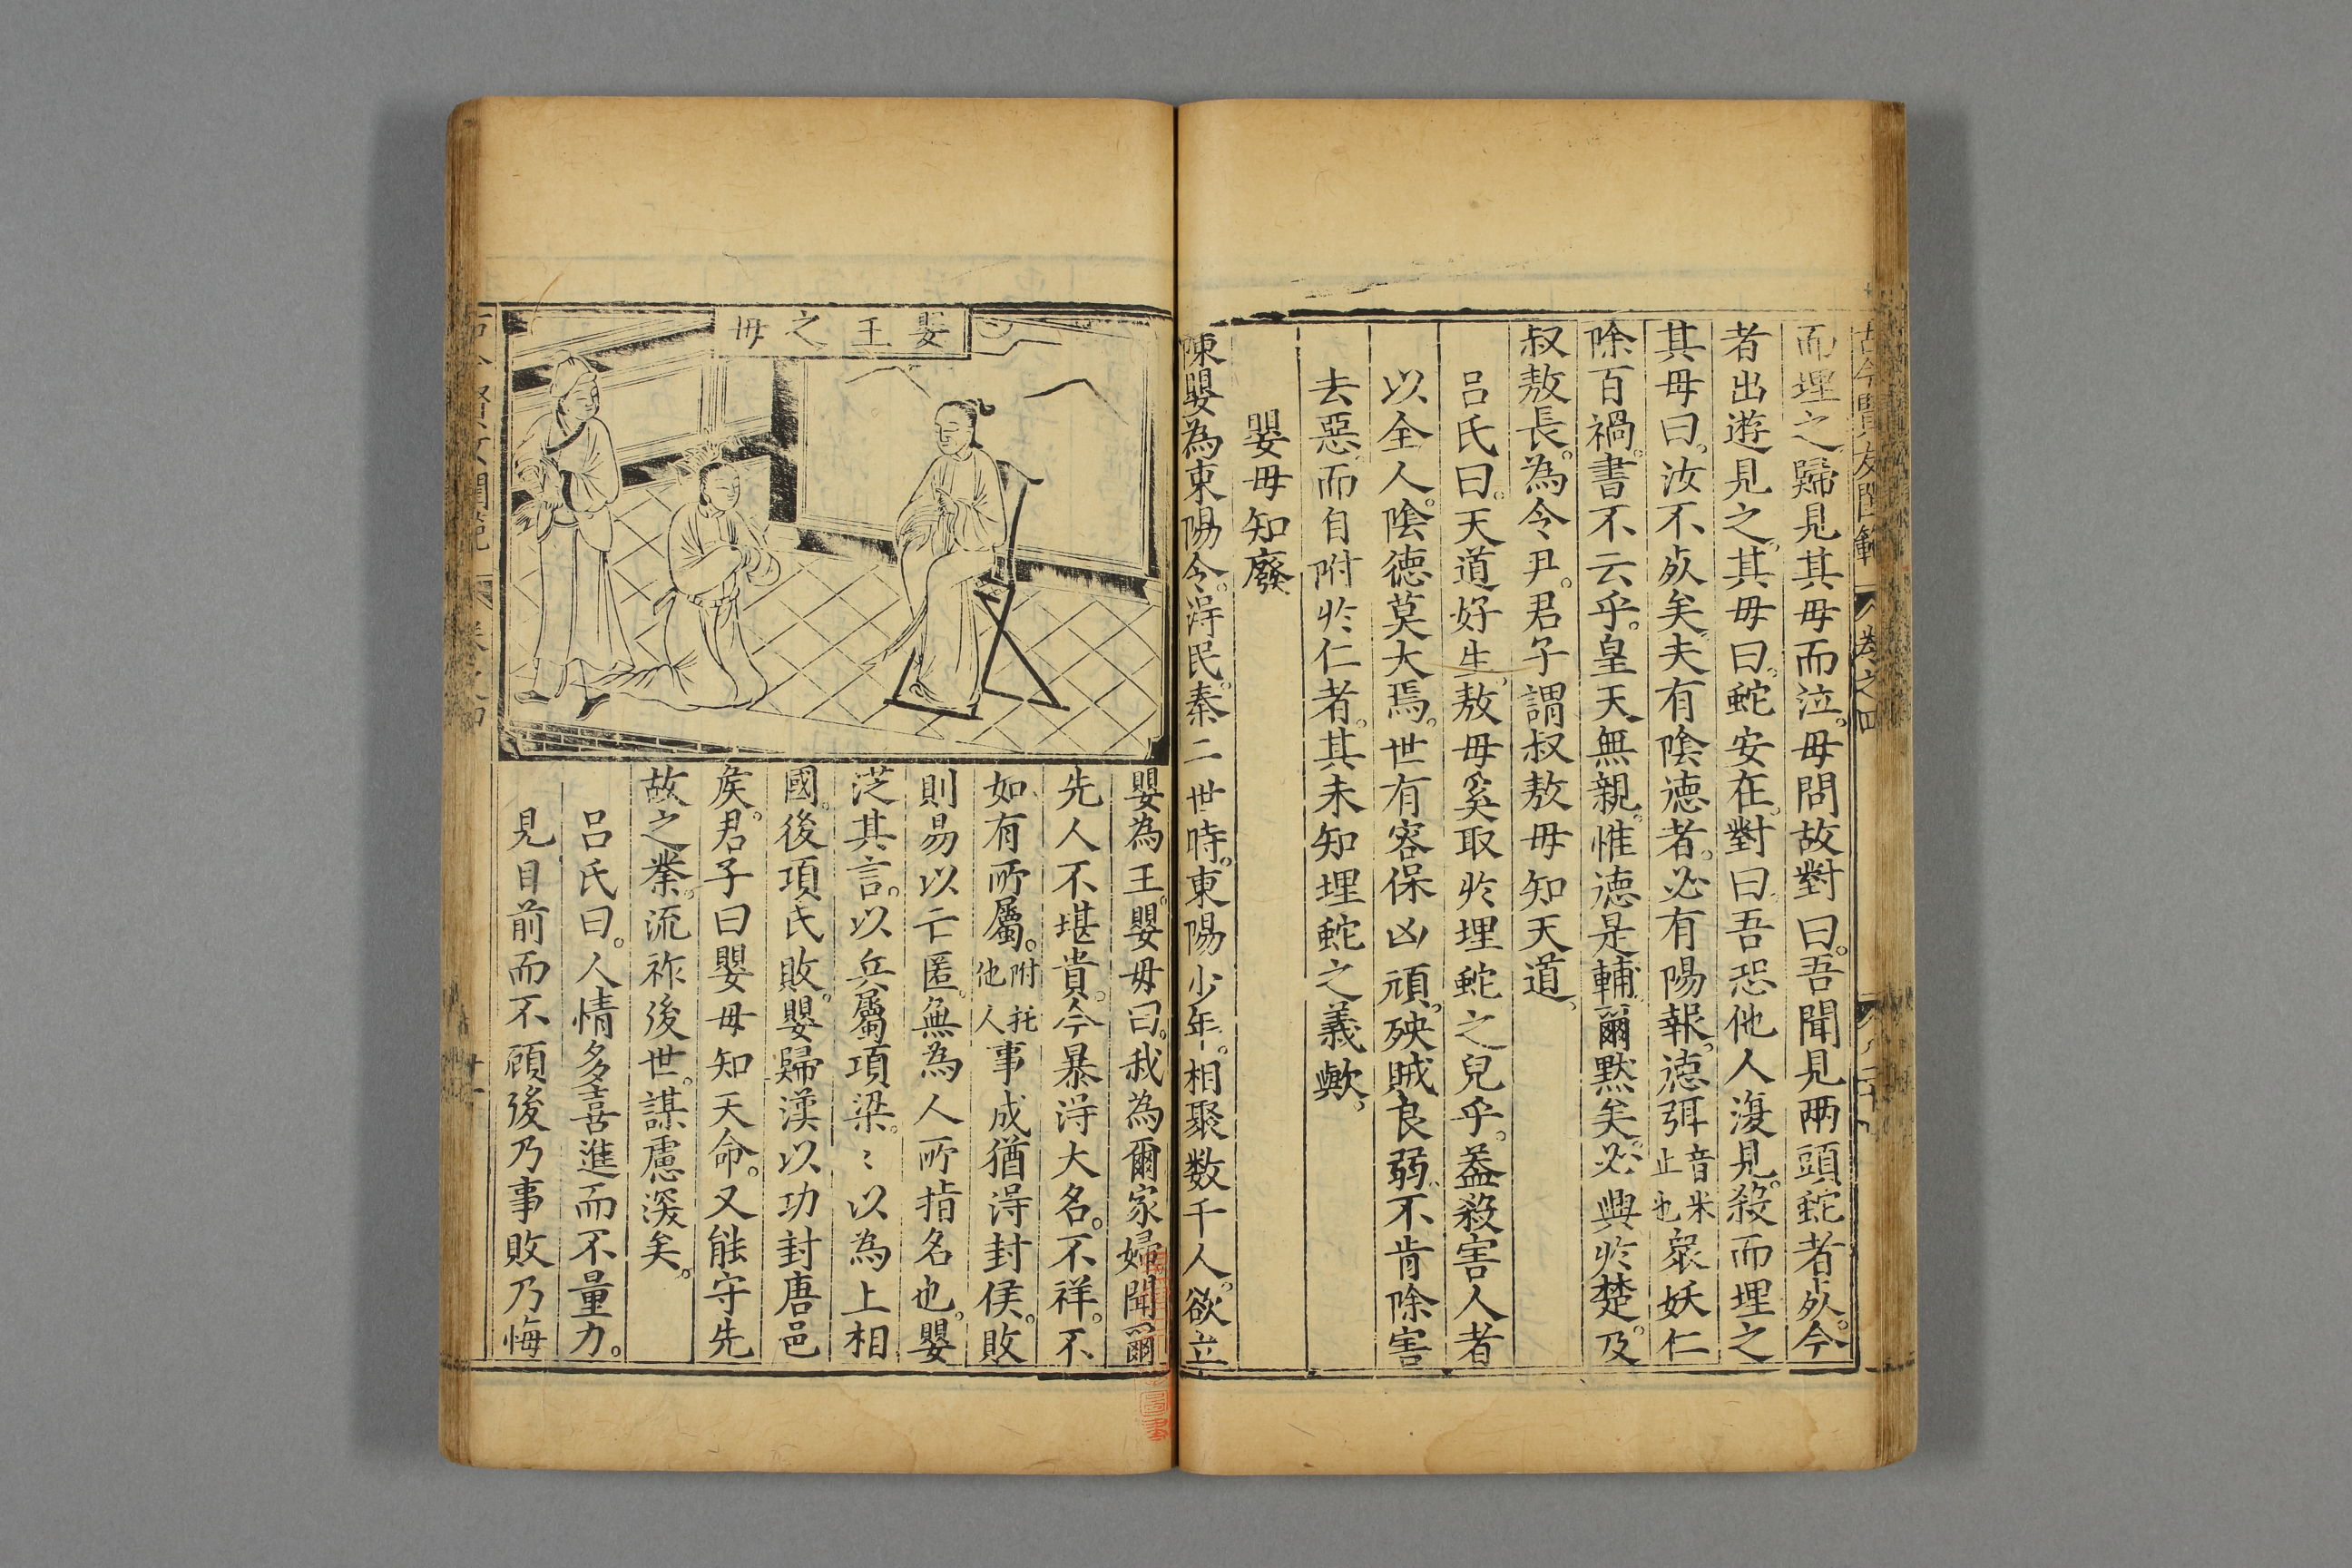 古今賢女閨範 卷之四
而埋之歸見其母而泣。母問故對曰。吾聞見兩頭蛇者歺。今
者出遊見之。其母曰。蛇安在。對曰吾恐他人復見。殺而埋之
其母曰。汝不歺矣夫有陰德者。必有陽報。德弭音米止也衆妖仁
除百禍。書不云乎。皇天無親。惟德是輔爾默矣。必興於楚。及
叔敖長。為令尹。君子謂叔敖母知天道。
呂氏曰。天道好生。敖母奚取於埋蛇之兒乎。蓋殺害人者
以全人。陰德莫大焉。世有容保凶頑。殃賊良弱。不肯除害
去惡而自附於仁者。其未知埋蛇之義歟。
嬰母知廢
陳嬰為東陽令。得民。秦二世時。東陽少年。相聚数千人。欲立
嬰王之母
嬰為王。嬰母曰。我為爾家婦聞爾
先人不堪貴。今暴得大名。不祥。不
如有所屬。附托他人事成猶得封侯。敗
則易以亡匿。無為人所指名也。嬰
從其言。以兵屬項梁。〻以為上相
國。後項氏敗。嬰歸漢以功封唐邑
矦。君子曰嬰母知天命。又能守先
故之業。流祚後世。謀慮深矣。
呂氏曰。人情多喜進而不量力。
見目前而不顧後乃事敗乃悔
卷之四